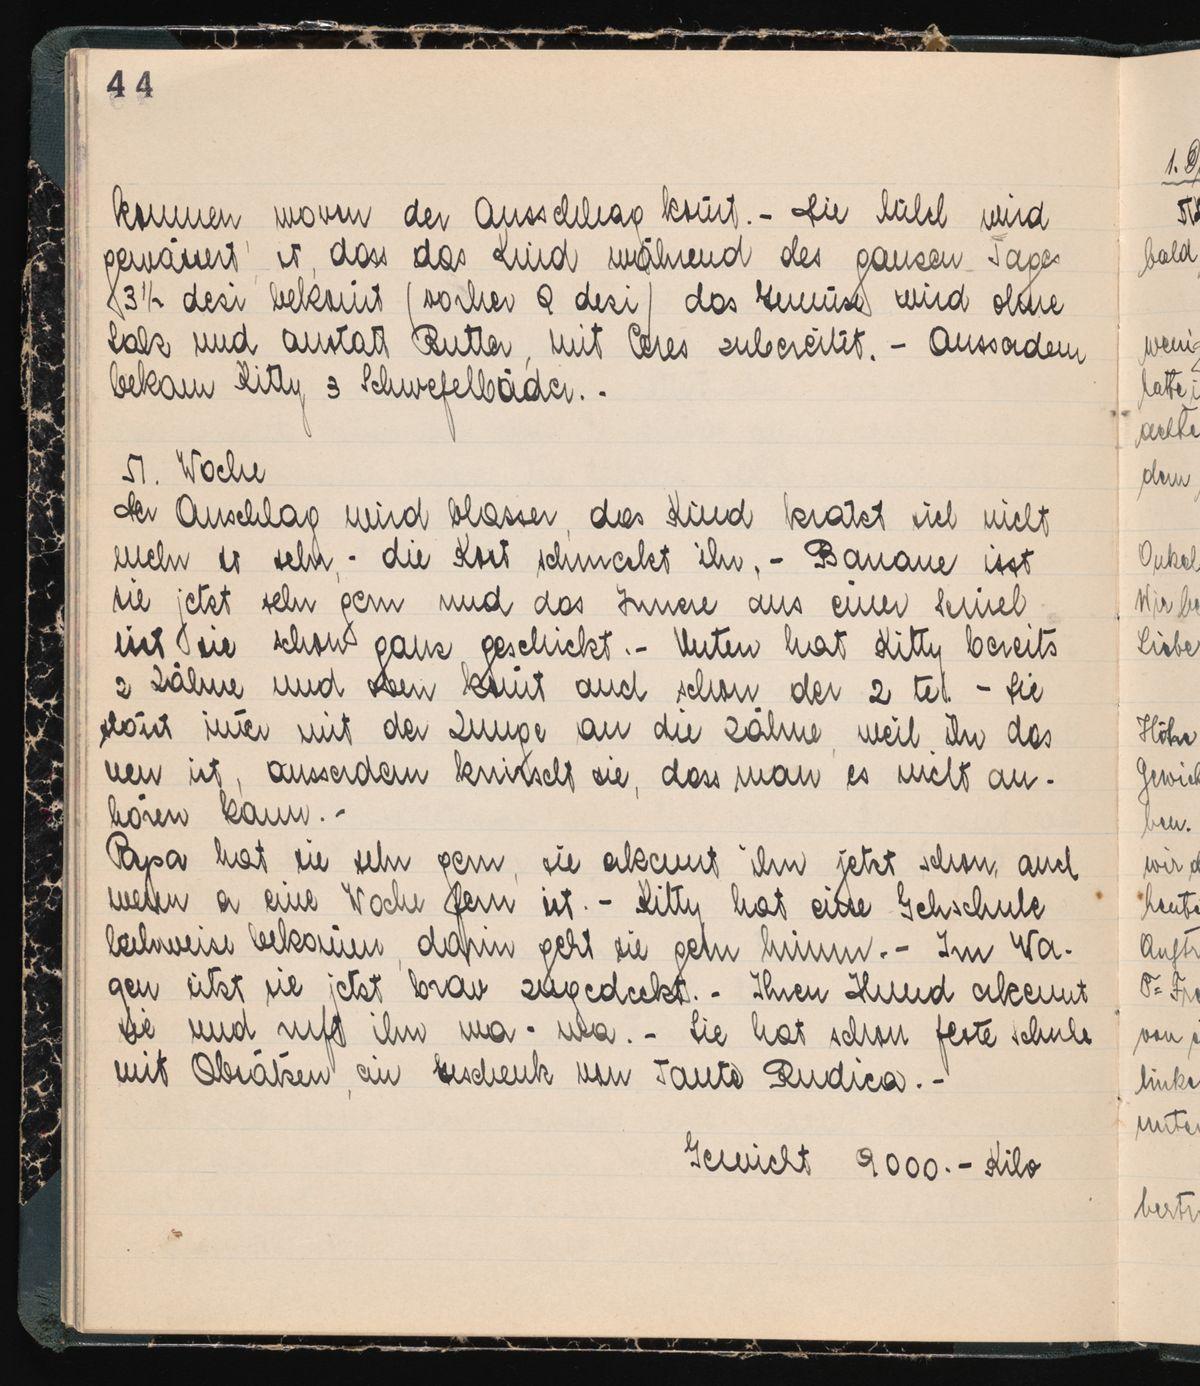 44
kommen wovon der Ausschlag komt. - Die Milch wird
gewässert so, dass das Kind während des ganzen Tages
3½ dezi bekomt (vorher 9 dezi) das Gemüse wird ohne
Salz und anstatt Butter, mit Ceres zubereitet. - Ausserdem
bekam Kitty 3 Schwefelbäder. -
51. Woche
Der Auschlag wird blasser, das Kind kratzt sich nicht
mehr so sehr, - die Kost schmeckt ihr. - Banane isst
sie jetzt sehr gern und das Innere aus einer Semel
isst sie schon ganz geschickt. - Unten hat Kitty bereits
2 Zähne und oben komt auch schon der 2 te. - Sie
stösst imer mit der Zunge an die Zähne, weil ihr das
neu ist, ausserdem knirscht sie, dass man es nicht an-
hören kann. -
Papa hat sie sehr gern, sie erkennt ihn jetzt schon, auch
wenn er eine Woche fern ist. - Kitty hat eine Gehschule
leihweise bekomen, darin geht sie gern herum. - Im Wa-
gen sitzt sie jetzt brav zugedeckt. - Ihren Hund erkennt
sie und ruft ihn wa - wa. - Sie hat schon feste Schuhe
mit Absätzen, ein Geschenk von Tante Rudica. -
Gewicht 9000. - Kilo
1.
bald
dem
Onkel
Wir
Liebe
Höhe
Gewich
ben.
wir
heute
von
linke
unter